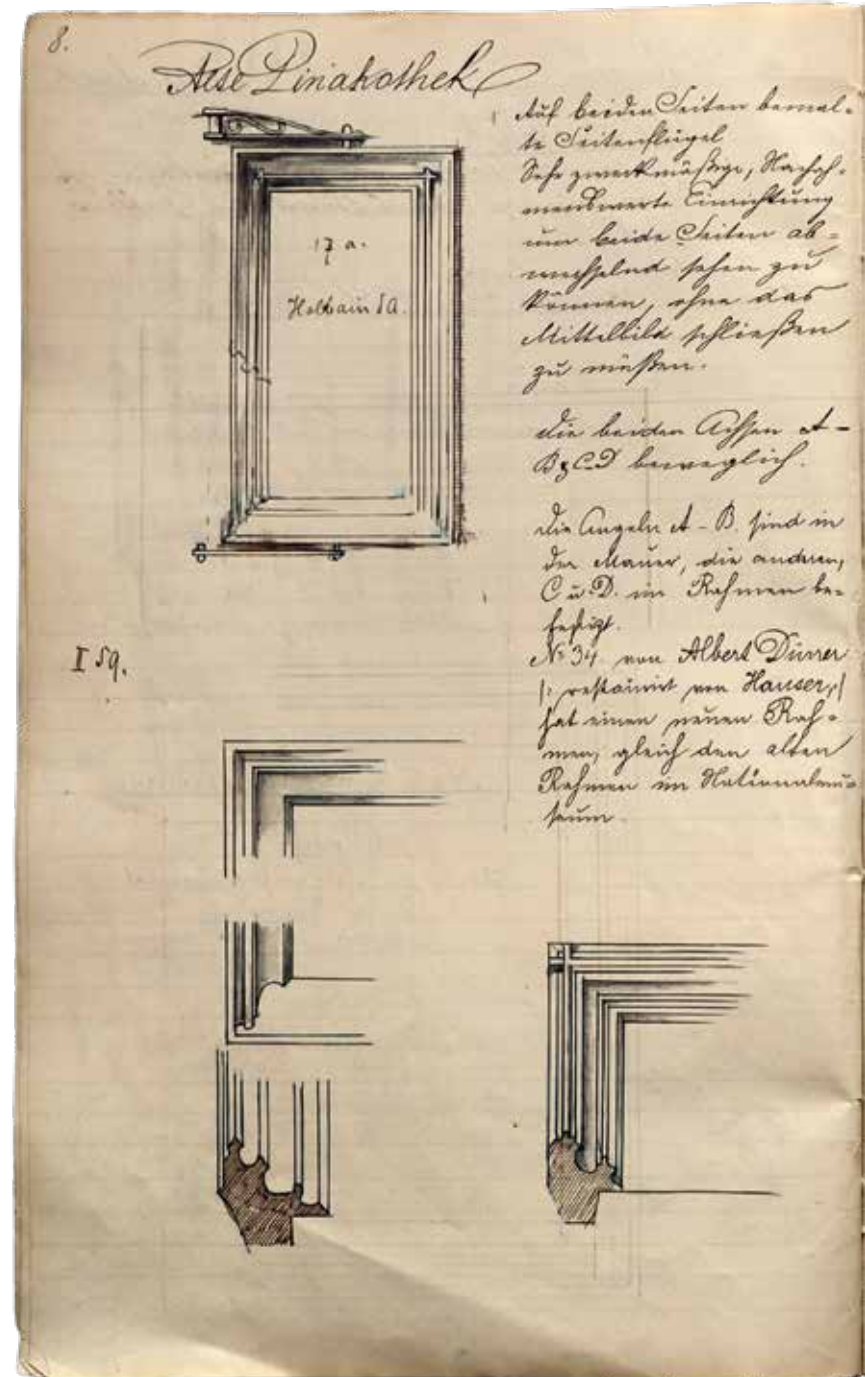 8.
Alte Pinakothek
17 a.
Holbein d Ä.
Auf beiden Seiten bemal-
te Seitenflügel
Sehr zweckmäßige, Nachah-
menswerte Einrichtung
um beide Seiten ab-
wechselnd sehen zu
können, ohne das
Mittelbild schließen
zu müßen.
Die beiden Achsen A-
B & C.D beweglich.
Die Angeln A - B. sind in
der Mauer, die anderen,
C u. D. im Rahmen be-
festigt.
I Sq.
No 34 von Albert Dürer
|: restaurirt von Hauser, :|
hat einen neuen Rah-
men, gleich den alten
Rahmen im Nationalmu-
seum.